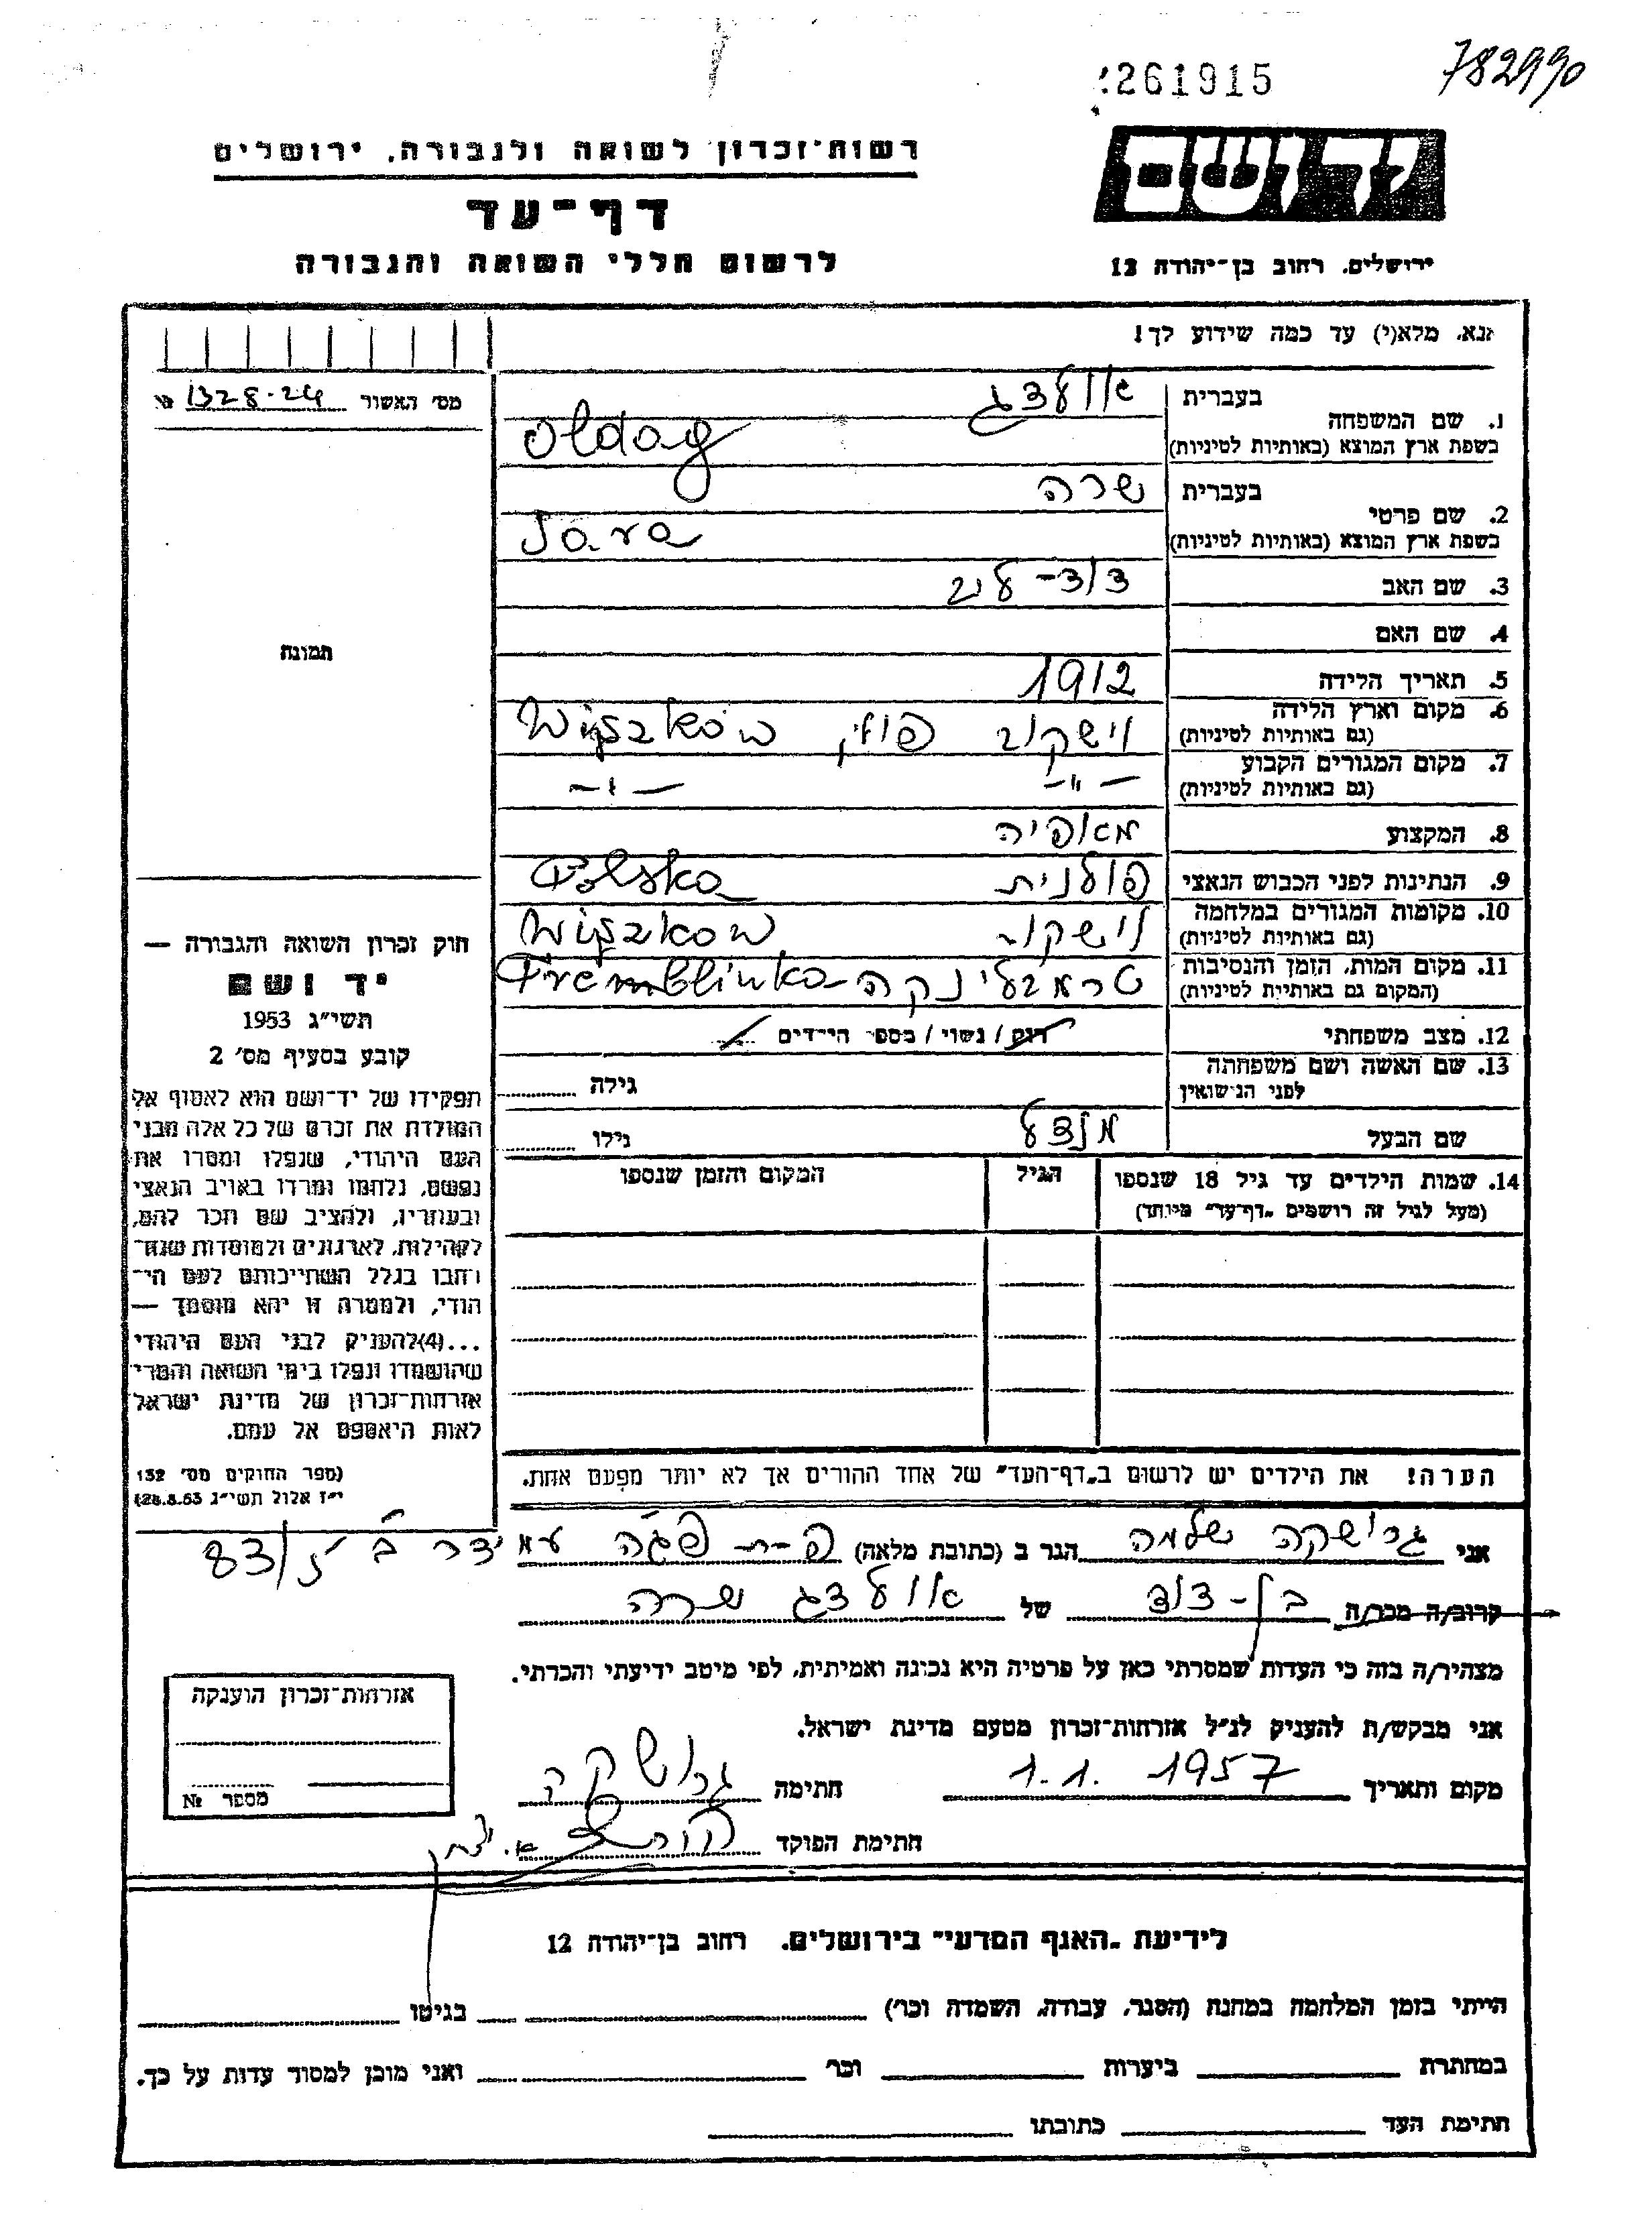 261915
782990
רשות־זכרון לשואה ולגבורה, ירושלים
דף־עד
לרשום חללי השואה והגבורה
יד ושם
ירושלים, רחוב בן־יהודה 12
אנא, מלא(י) עד כמה שידוע לך!
מס' האשור 1328-24 №
תמונה
1. שם המשפחה
בעברית אולדג
בשפת ארץ המוצא (באותיות לטיניות) Oldag
2. שם פרטי
בעברית שרה
בשפת ארץ המוצא (באותיות לטיניות) Sara
3. שם האב דוד-לב
4. שם האם
5. תאריך הלידה 1912
6. מקום וארץ הלידה
(גם באותיות לטיניות) וישקוב פולין Wiszków
7. מקום המגורים הקבוע
(גם באותיות לטיניות) -"- -"-
8. המקצוע מאופיה
9. הנתינות לפני הכבוש הנאצי פולנית Polska
10. מקומות המגורים במלחמה
(גם באותיות לטיניות) וישקוב Wiszkow
11. מקום המות, הזמן והנסיבות
(המקום גם באותיות לטיניות) טרמבלינקה Tremblinka
12. מצב משפחתי רוק / נשוי / מספר הילדים
13. שם האשה ושם משפחתה
לפני הנישואין גילה
שם הבעל מנדל גילו
14. שמות הילדים עד גיל 18 שנספו
(מעל לגיל זה רושמים "דף־עד" מיוחד)
הגיל
המקום והזמן שנספו
הערה! את הילדים יש לרשום ב"דף־העד" של אחד ההורים אך לא יותר מפעם אחת.
חוק זכרון השואה והגבורה —
יד ושם
תשי"ג 1953
קובע בסעיף מס' 2
תפקידו של יד־ושם הוא לאסוף אל
המולדת את זכרם של כל אלה מבני
העם היהודי, שנפלו ומסרו את
נפשם, נלחמו ומרדו באויב הנאצי
ובעוזריו, ולהציב שם וזכר להם,
לקהילות, לארגונים ולמוסדות שנח־
רבו בגלל השתייכותם לעם הי־
הודי, ולמטרה זו יהא מוסמך —
...(4) להעניק לבני העם היהודי
שהושמדו ונפלו בימי השואה והמרי
אזרחות־זכרון של מדינת ישראל
לאות היאספם אל עמם.
(ספר החוקים מס' 132
י"ז אלול תשי"ג 28.8.53)
אני גרושקה שלמה הגר ב (כתובת מלאה) פ-ת פגה עמידר ב' 83/
קרוב/ה מכר/ה בן-דוד של אולדג שרה
מצהיר/ה בזה כי העדות שמסרתי כאן על פרטיה היא נכונה ואמיתית, לפי מיטב ידיעתי והכרתי.
אני מבקש/ת להעניק לנ"ל אזרחות־זכרון מטעם מדינת ישראל.
מקום ותאריך 1.1.1957 חתימה גרושקה
חתימת הפוקד
אזרחות־זכרון הוענקה
מספר №
לידיעת "האגף המדעי" בירושלים, רחוב בן־יהודה 12
הייתי בזמן המלחמה במחנה (הסגר, עבודה, השמדה וכר') בגיטו
במחתרת ביערות וכר' ואני מוכן למסור עדות על כך.
חתימת העד כתובתו